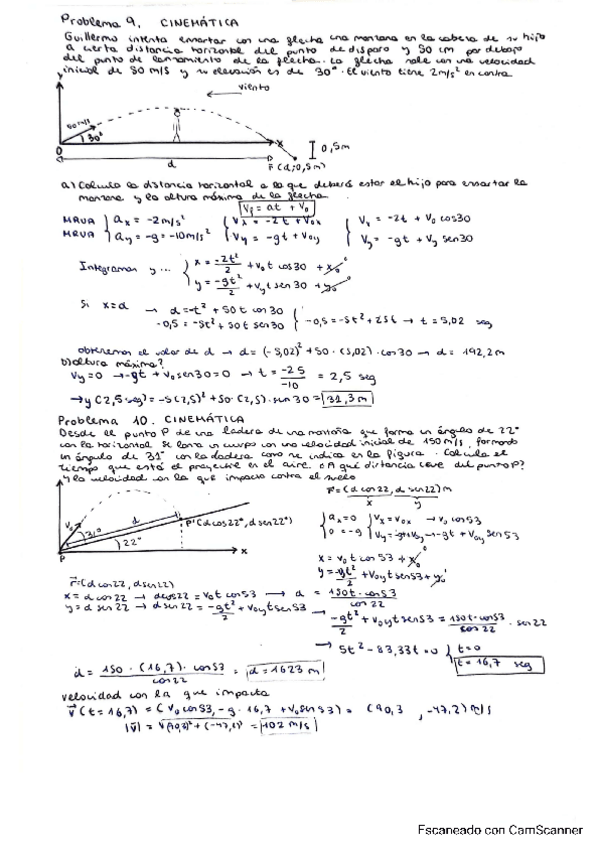 Problema 9. CINEMÁTICA
Guillermo intenta ensartar con una flecha una manzana en la cabeza de su hijo
a cierta distancia horizontal del punto de disparo y 50 cm por debajo
del punto de lanzamiento de la flecha. La flecha sale con una velocidad
inicial de 50 m/s y su elevación es de 30°. El viento tiene 2m/s² en contra
y
viento
50 m/s
30°
O
x
0,5m
d
r̄ (d,-0,5m)
a) Calcula la distancia horizontal a la que deberá estar el hijo para ensartar la
manzana y la altura máxima de la flecha
Vf = at + V0
MRUA ax = -2m/s² Vx = -2t + V0x Vx = -2t + V0 cos30
MRUA ay = -g = -10m/s² Vy = -gt + V0y Vy = -gt + Vy sen30
Integramos y ... x = -2t²/2 + v0t cos30 + x0 0
y = -gt²/2 + vyt sen30 + y0 0
Si x=d → d=-t² + 50t cos30
-0,5 = -5t² + 50t sen30 { -0,5 = -5t² + 25t → t = 5,02 seg
obtenemos el valor de d → d = (-5,02)² + 50 · (5,02) · cos30 → d = 192,2m
b) altura máxima?
Vy=0 → -gt + v0sen30 = 0 → t = -25/-10 = 2,5 seg
→ y(2,5seg) = -5(2,5)² + 50·(2,5)·sen30 = 31,3m
Problema 10. CINEMÁTICA
Desde el punto P de una ladera de una montaña que forma un ángulo de 22°
con la horizontal se lanza un cuerpo con una velocidad inicial de 150 m/s, formando
un ángulo de 31° con la ladera como se indica en la figura. Calcula el
tiempo que está el proyectil en el aire. ¿A qué distancia cae del punto P?
y la velocidad con la que impacta contra el suelo
y
r̄ = (d cos22, d sen22)m
x y
V0
d
P'(d cos22°, d sen22°)
31°
22°
P
x
ax=0 Vx=V0x → v0 cos53
ay = -g Vy=-gt+V0y → -gt + V0y sen53
x = v0t cos53 + x0 0
y = -gt²/2 + V0yt sen53 + y0 0
r̄ = (d cos22, d sen22)
x = d cos22 → d cos22 = v0t cos53 → d = 150t·cos53/cos22
y = d sen22 → d sen22 = -gt²/2 + V0yt sen53
→ -gt²/2 + v0yt sen53 = 150t·cos53/cos22 · sen22
→ 5t² - 83,33t = 0 { t=0
t = 16,7 seg
d = 150 · (16,7) · cos53/cos22 = d = 1623 m
velocidad con la que impacta
v̄(t=16,7) = (v0cos53, -g·16,7 + v0sen53) = (90,3 , -47,2) m/s
|v̄| = √(90,3)² + (-47,2)² = 102 m/s
Escaneado con CamScanner